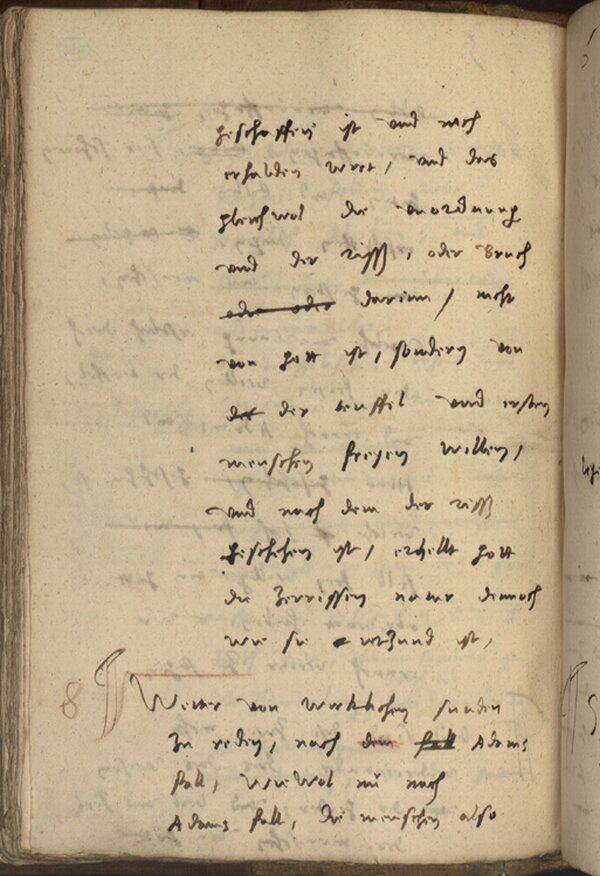 geschaffen ist und noch
erhalden wirt, und das
gleichwol die unordnung
und der riss, oder bruch
oder oder darinn, nicht
von gott ist, sondern von
der teuffel und ersten
menschen freyen willen,
und nach dem der riss
geschehen ist, erhellt gott
die zerrissen natur dennoch
wie sie ietzund ist,
8 Weiter von wirklichen sunden
zu reden, nach dem fall Adams
fall, wie wol nu nach
Adams fall, die menschen also